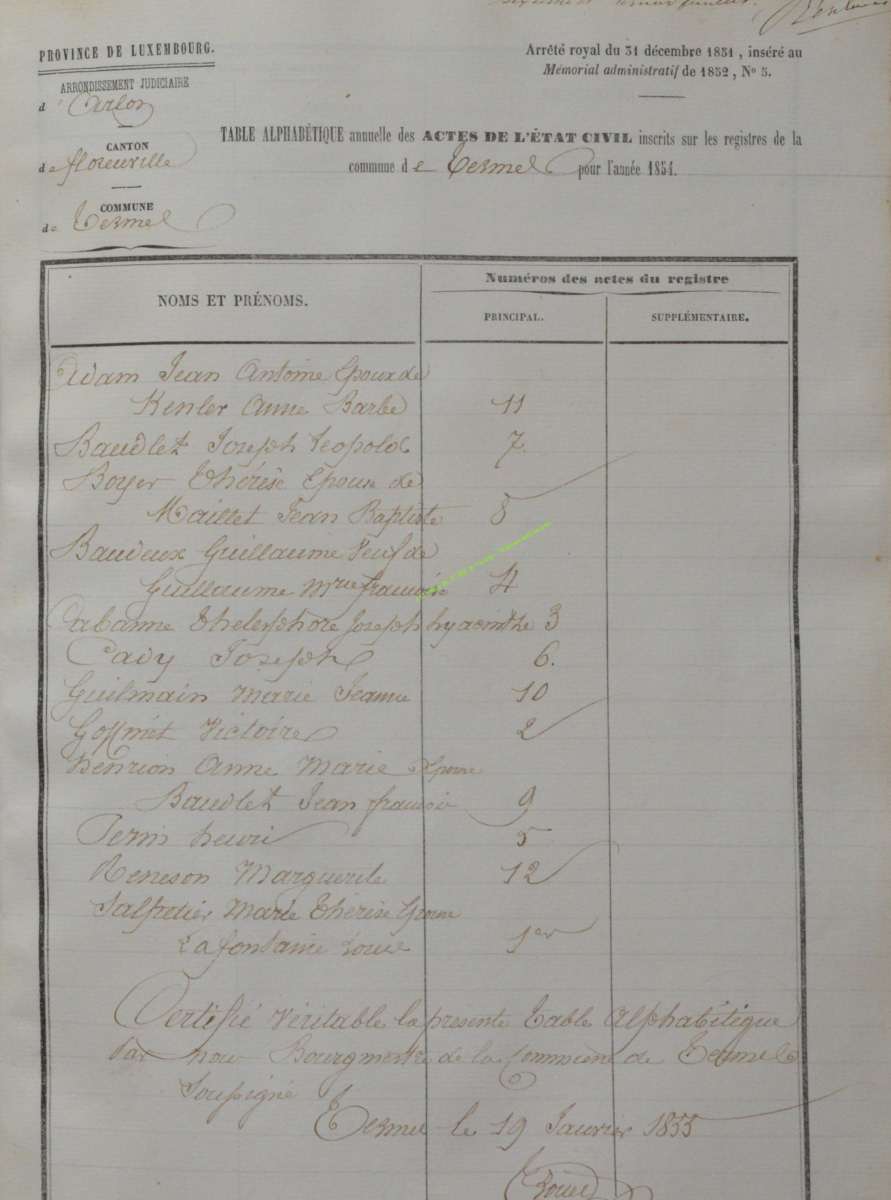 PROVINCE DE LUXEMBOURG.
ARRONDISSEMENT JUDICIAIRE
d'Arlon
CANTON
de florenville
COMMUNE
de Termel
Arrêté royal du 31 décembre 1831, inséré au
Mémorial administratif de 1832, No 5.
TABLE ALPHABÉTIQUE annuelle des ACTES DE L'ÉTAT CIVIL inscrits sur les registres de la
commune de Termel pour l'année 1854.
NOMS ET PRÉNOMS.
Numéros des actes du registre
PRINCIPAL.
SUPPLÉMENTAIRE.
Adam Jean Antoine Epoux de
Kenler Anne Barbe 11
Baudlet Joseph Leopold 7.
Boyer Thérèse Epouse de
Maillet Jean Baptiste 8
Baudeux Guillaume Veuf de
Guillaume Mrie francoise 4
Cabanne Thelesphore Joseph hyacinthe 3
Cady Joseph 6.
Guilmain Marie Jeanne 10
Goffinet Victoire 2
Henrion Anne Marie Epouse
Baudlet Jean francois 9
Pernis henri 5
Reneson Marguerite 12
Salpetier Marie Thérèse Epouse
Lafontaine Louis 1er
Certifié Véritable la présente Table Alphabétique
Par nous Bourgmestre de la Commune de Termel
Soussigné
Termel le 19 Janvier 1855